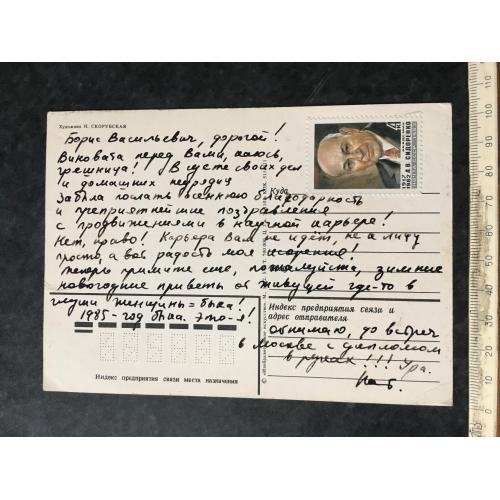 Художник Н. СКОРУБСКАЯ
Борис Васильевич, дорогой!
Виновата перед Вами, каюсь,
грешница! В густе своих дел
и домашних неурядиц
Куда
забыла послать осеннюю благодарность
и преприятнейшие поздравления
с продвижениями в научной карьере!
Нет, право! Карьера Вам не идёт, не к лицу
просто, а вот радость моя искренна!
Теперь примите еще, пожалуйста, зимние
новогодние приветы от живущей где-то в
глуши женщины – быка!
1985-год быка. Это-я!
Индекс предприятия связи и
адрес отправителя
обнимаю, до встречи
в Москве с дипломом
в руках!!! Ура.
Индекс предприятия связи места назначения
4 К
А.В. СИДОРЕНКО
1917
1982